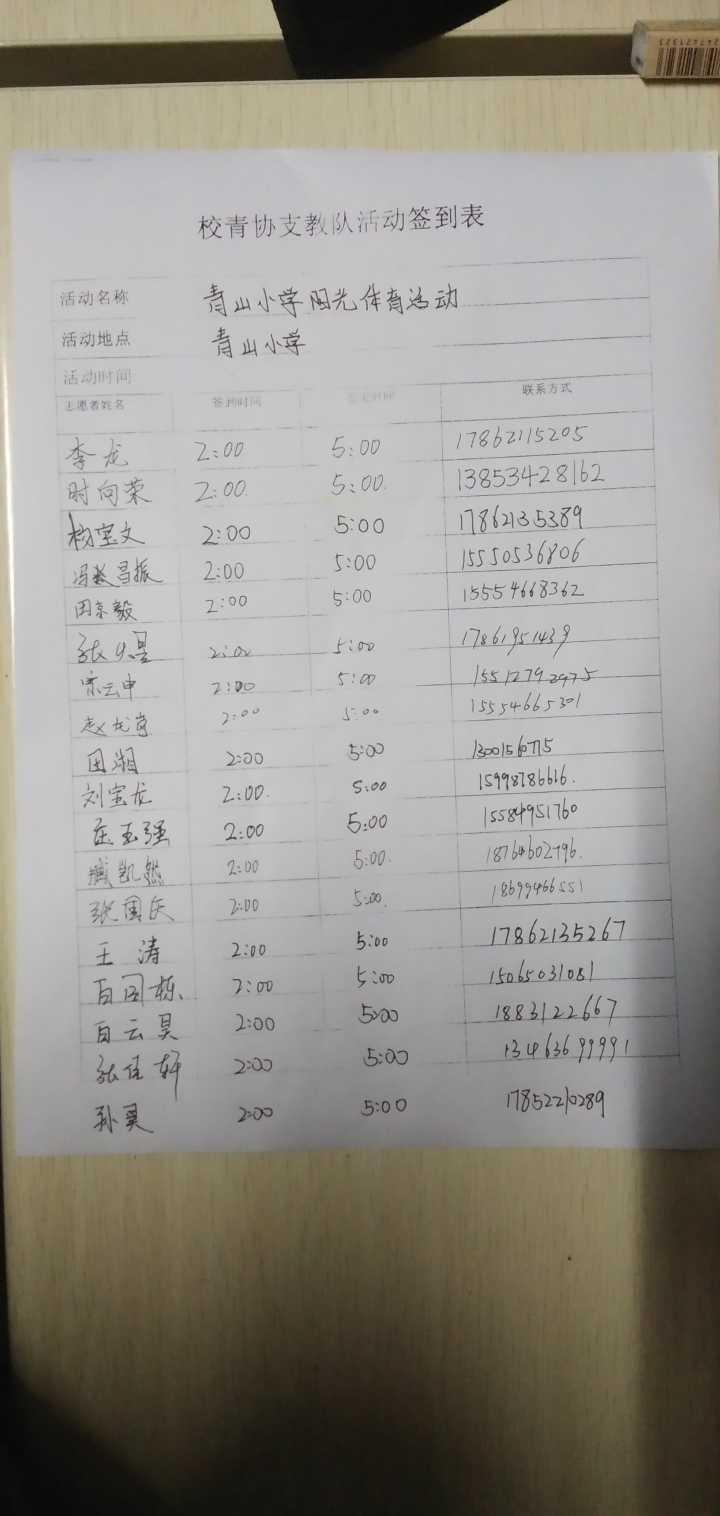 校青协支教队活动签到表
活动名称 青山小学阳光体育活动
活动地点 青山小学
活动时间
志愿者姓名 签到时间 签走时间 联系方式
李龙 2:00 5:00 17862115205
时向荣 2:00 5:00 13853428162
杨宝文 2:00 5:00 17862135389
冯 昌振 2:00 5:00 15550536806
田京毅 2:00 5:00 15554668362
张 昊 2:00 5:00 17861951439
宗云申 2:00 5:00 15512792975
赵龙 2:00 5:00 15554665301
田湘 2:00 5:00
刘宝龙 2:00 5:00 15998786616
庄玉强 2:00 5:00 15584951760
臧凯然 2:00 5:00 18764602796
张国庆 2:00 5:00 18699466551
王涛 2:00 5:00 17862135267
百图栋 2:00 5:00 15065031081
白云昊 2:00 5:00 1883122667
张佳轩 2:00 5:00 13463699991
孙昊 2:00 5:00 17852210289